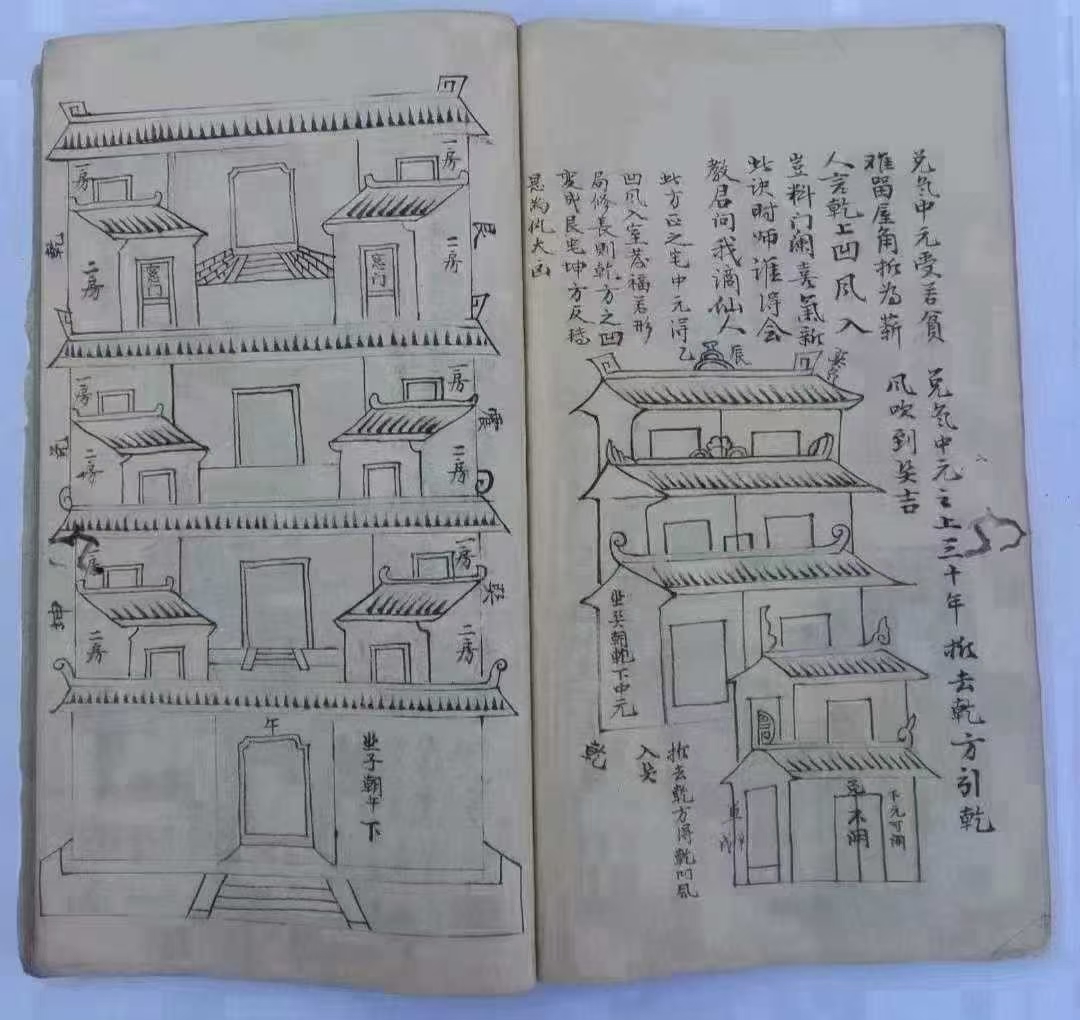 兑氣中元受苦貧
难留屋角拆為薪
人言乾上凹风入
豈料门闌喜氣新
此诀时师谁得会
教君问我谪仙人
此方正之宅中元得乙
凹风入室發福若形
局修長則乾方之凹
变成艮宅坤方反
思為优大凶
兑氣中元主上三十年 拆去乾方引乾
风吹到癸吉
辰
坐癸朝乾下中元
拆去乾方得乾凹风
入癸
乾
下元可開
兑不開
一房
一房
二房
二房
窓门
窓门
乾
艮
一房
一房
二房
二房
兑
震
一房
一房
二房
二房
坤
巽
午
坐子朝午下